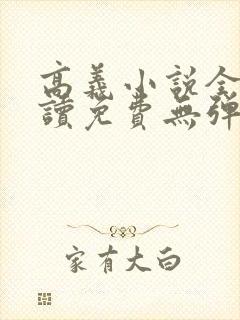 高義小說全
讀免費無彈
家有大白